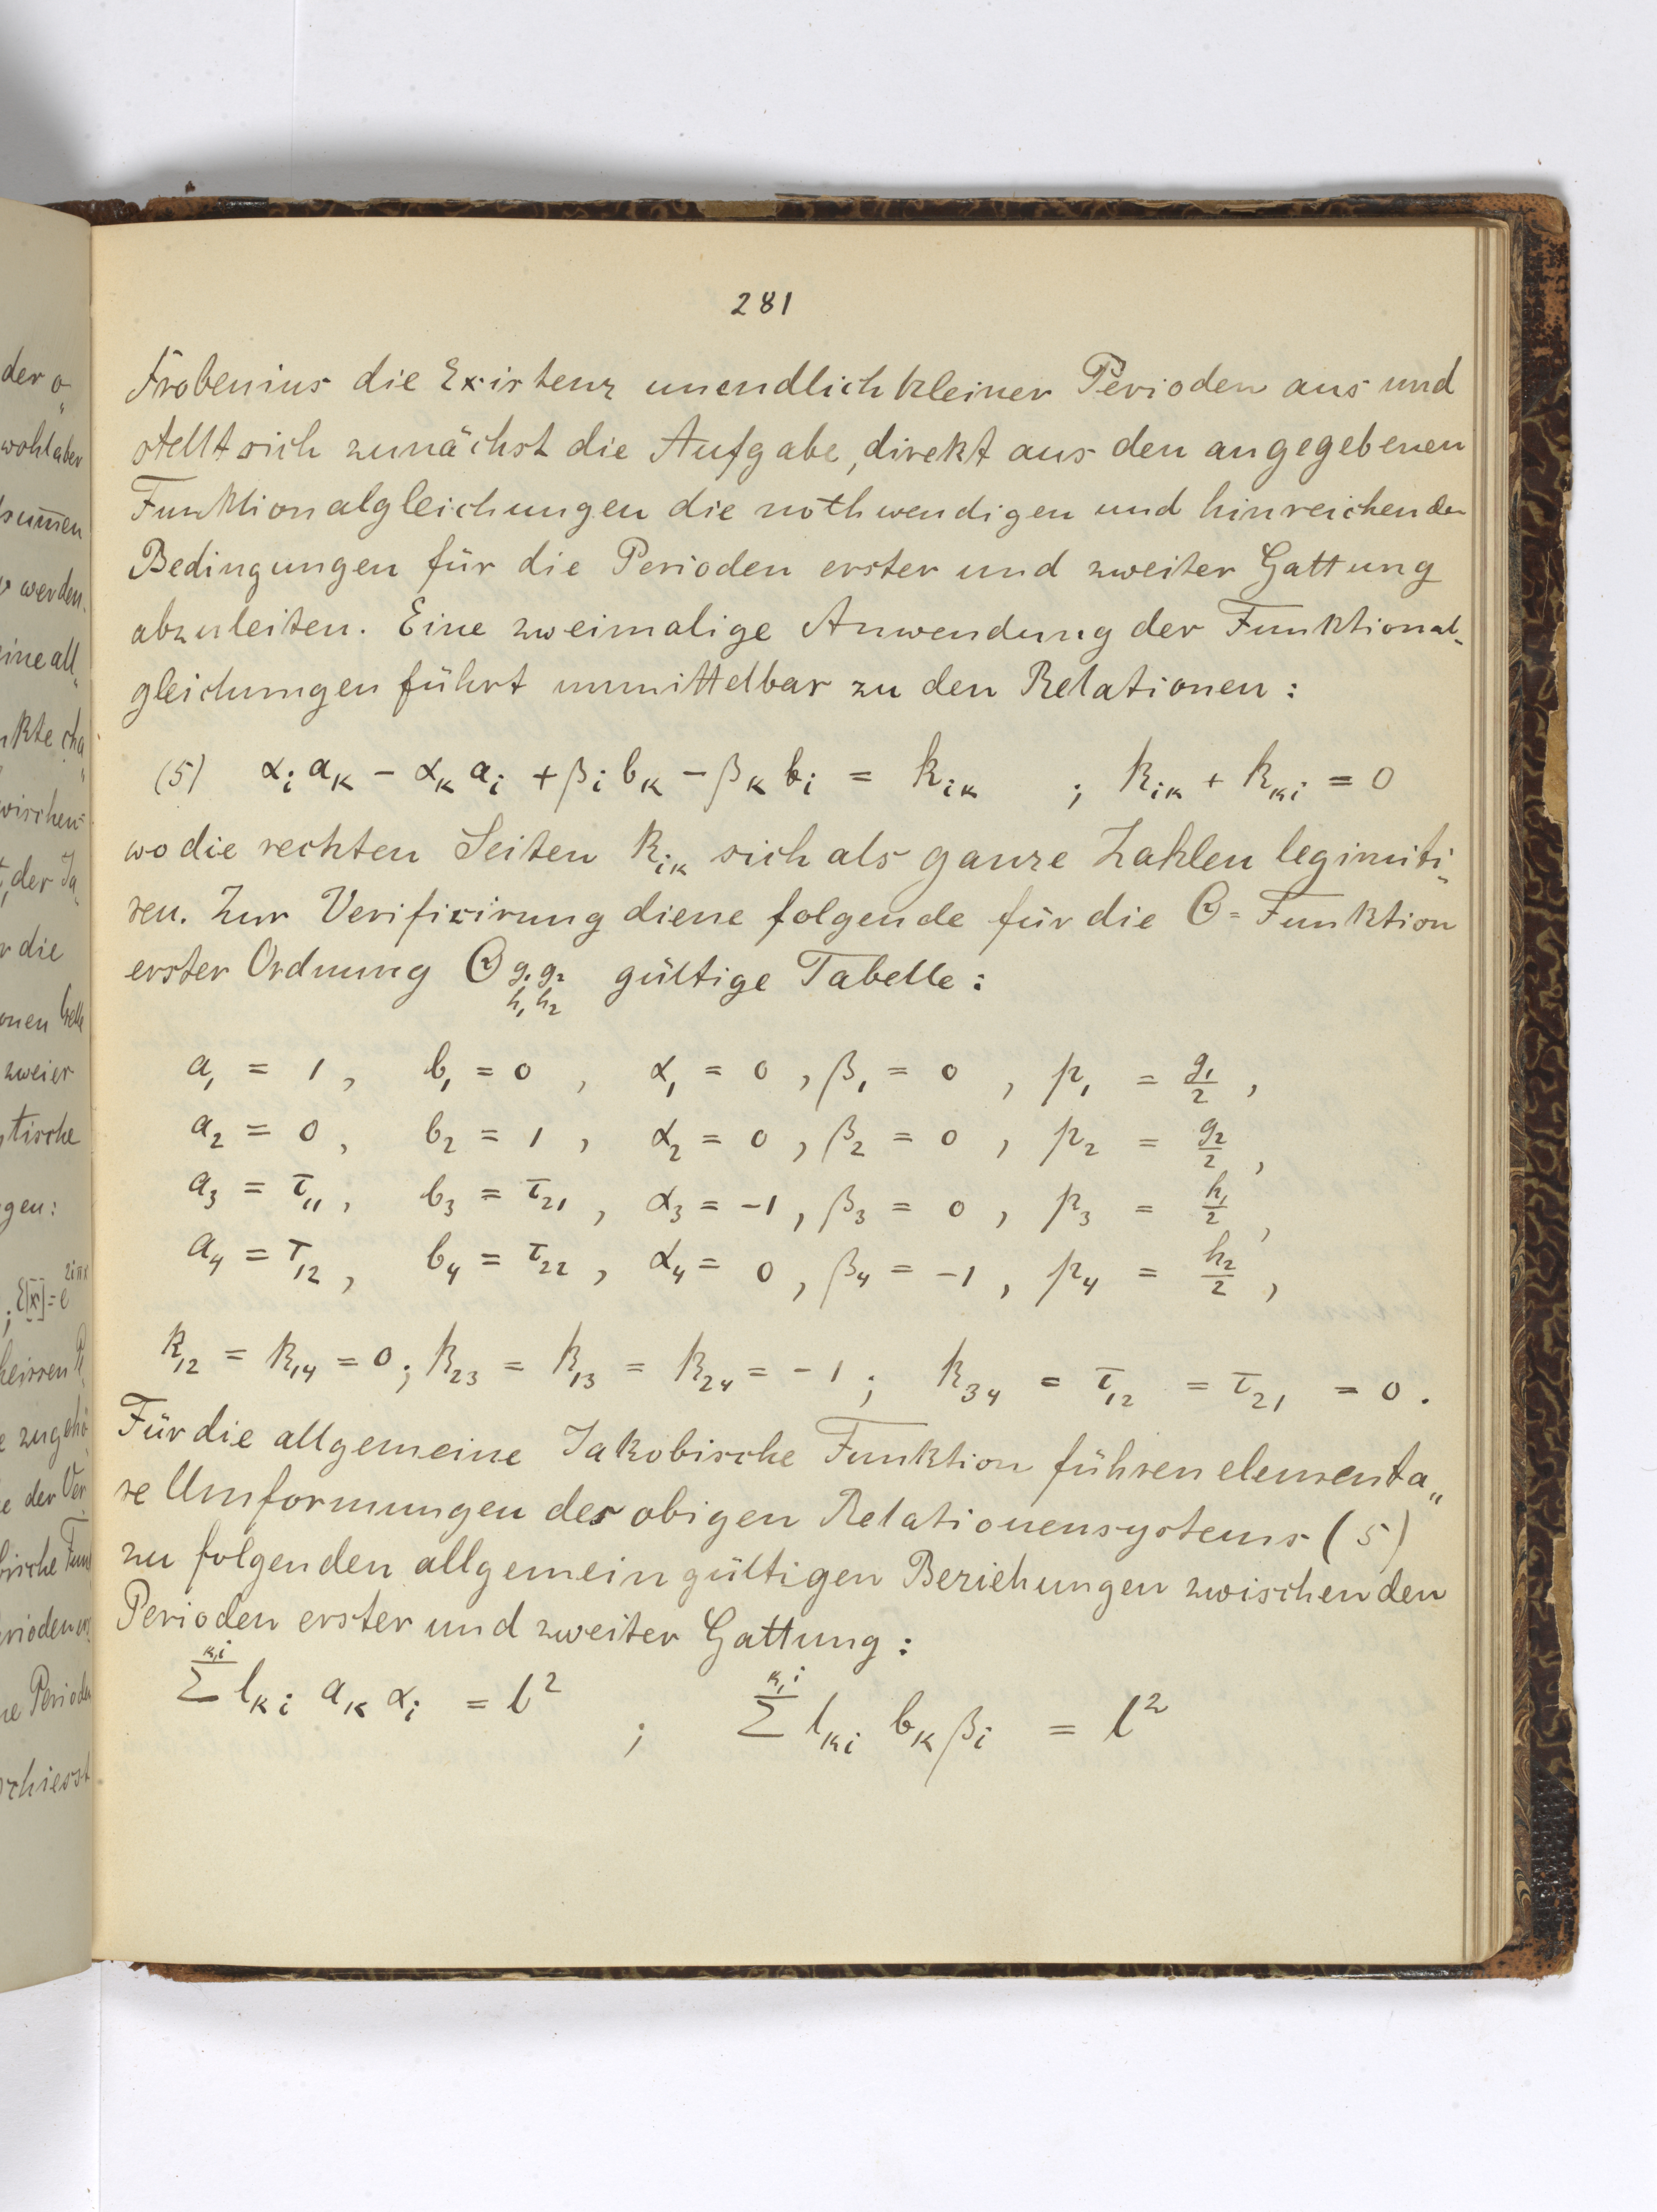 der o„
wohl aber
werden.
eine all„
der Ja„
r die
onen
zweier
gen:
heissen
e der Ver
281
Frobenius die Existenz unendlich kleiner Perioden aus und
stellt sich zunächst die Aufgabe, direkt aus den angegebenen
Funktionalgleichungen die nothwendigen und hinreichenden
Bedingungen für die Perioden erster und zweiter Gattung
abzuleiten. Eine zweimalige Anwendung der Funktional„
gleichungen führt unmittelbar zu den Relationen:
(5) αᵢ aₖ − αₖ aᵢ + βᵢ bₖ − βₖ bᵢ = kᵢₖ ; kᵢₖ + kₖᵢ = 0
wo die rechten Seiten kᵢₖ sich als ganze Zahlen legimiti„
ren. Zur Verifizirung diene folgende für die Θ = Funktion
erster Ordnung Θ g₁ g₂ h₁ h₂ gültige Tabelle:
a₁ = 1, b₁ = 0, α₁ = 0, β₁ = 0, p₁ = g₁/2,
a₂ = 0, b₂ = 1, α₂ = 0, β₂ = 0, p₂ = g₂/2,
a₃ = τ₁₁, b₃ = τ₂₁, α₃ = −1, β₃ = 0, p₃ = h₁/2,
a₄ = τ₁₂, b₄ = τ₂₂, α₄ = 0, β₄ = −1, p₄ = h₂/2,
k₁₂ = k₁₄ = 0; k₂₃ = k₁₃ = k₂₄ = −1; k₃₄ = τ₁₂ = τ₂₁ = 0.
Für die allgemeine Jakobische Funktion führen elementa„
re Umformungen des obigen Relationensystems (5)
zu folgenden allgemein gültigen Beziehungen zwischen den
Perioden erster und zweiter Gattung:
Σ^{k,i} lₖᵢ aₖ αᵢ = l² ; Σ^{k,i} lₖᵢ bₖ βᵢ = l²